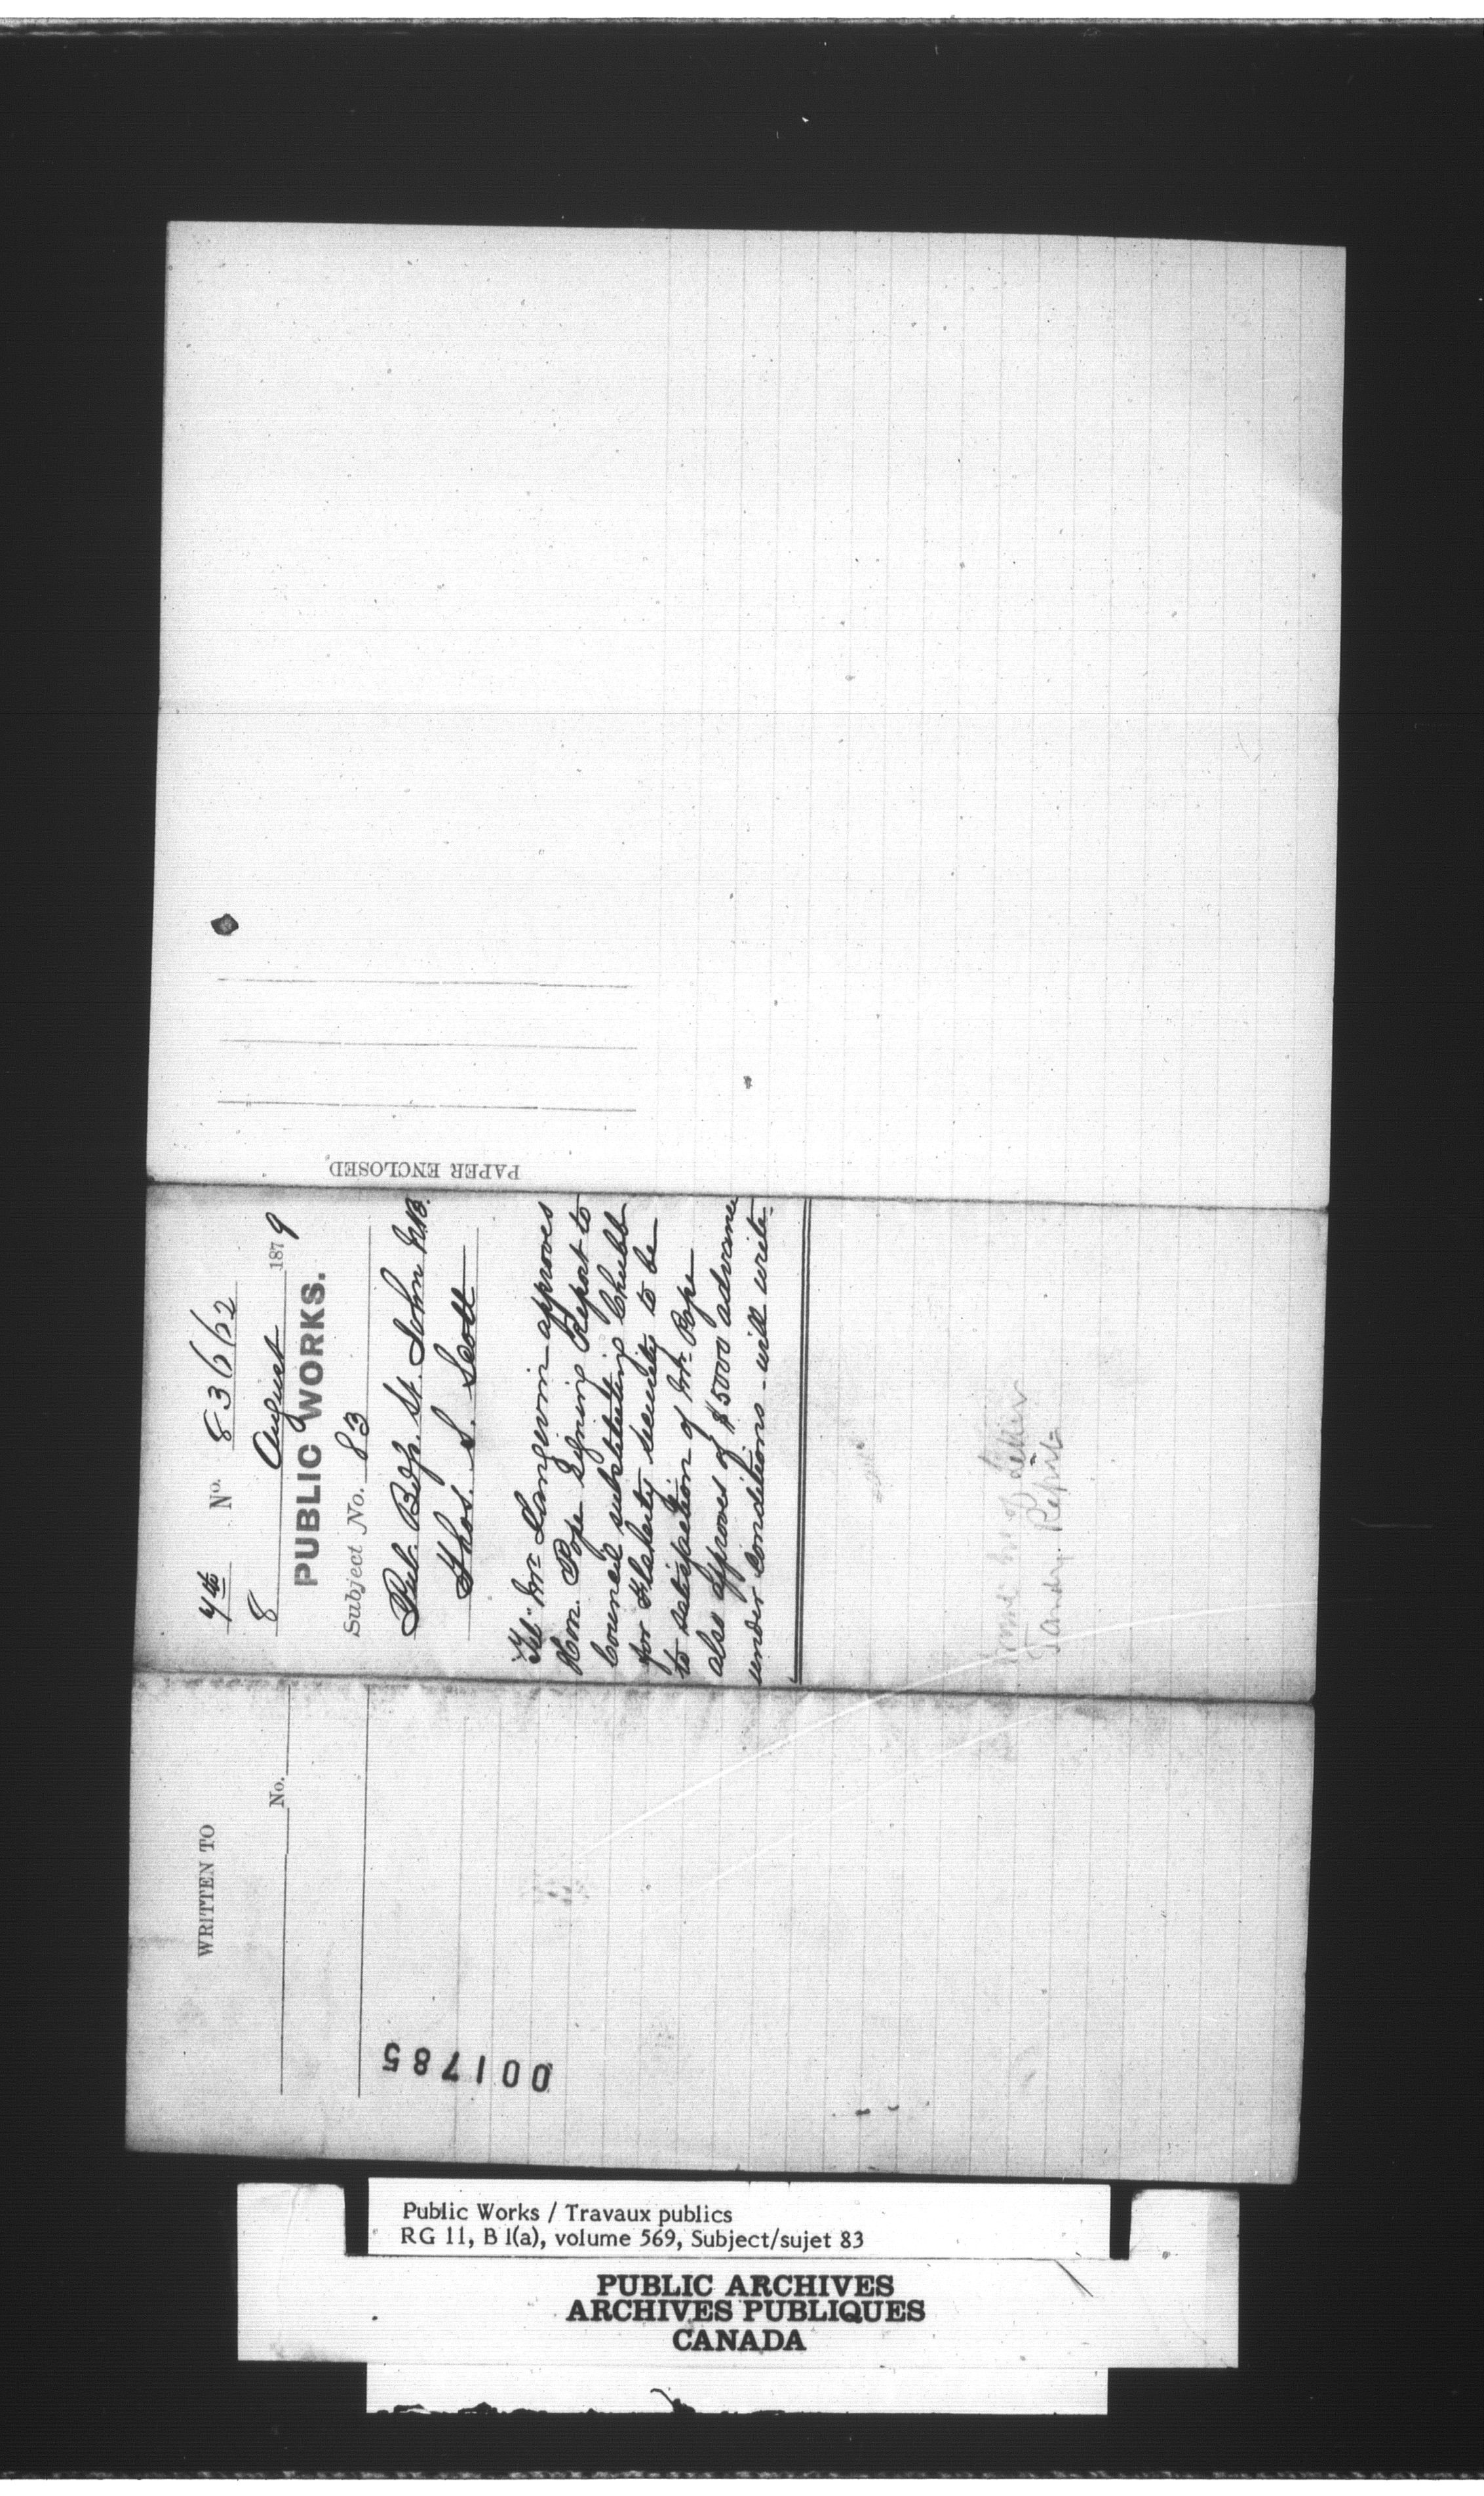 7th No. 83662
8 August 1879
PUBLIC WORKS.
Subject No. 83
Pub. Bdgs. St. John N.B.
Thos. S. Scott
Tel. Mr. Langevin approves
Hon. Pope signing Report to
Council substituting Chubb
for Flaherty security to be
to satisfaction of Mr. Pope
also approves of $5000 advance
under conditions - will write.
Letter
Report
PAPER ENCLOSED
WRITTEN TO
No.
001785
Public Works / Travaux publics
RG 11, B 1(a), volume 569, Subject/sujet 83
PUBLIC ARCHIVES
ARCHIVES PUBLIQUES
CANADA